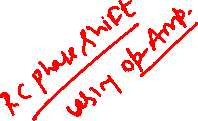 RC phase shift
using op Amp.